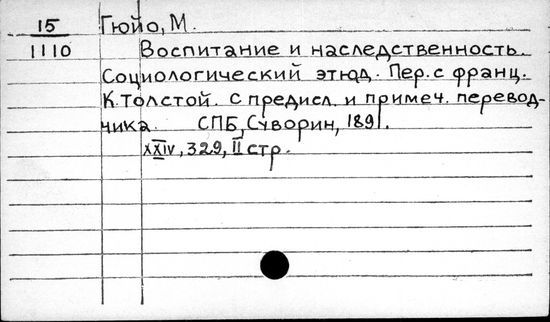 15 Гюйо, М.
1110 Воспитание и наследственность.
Социологический этюд. Пер. с франц.
К. Толстой. С предисл. и примеч. перевод-
чика. СПБ, Суворин, 1891.
XXIV, 329, II стр.